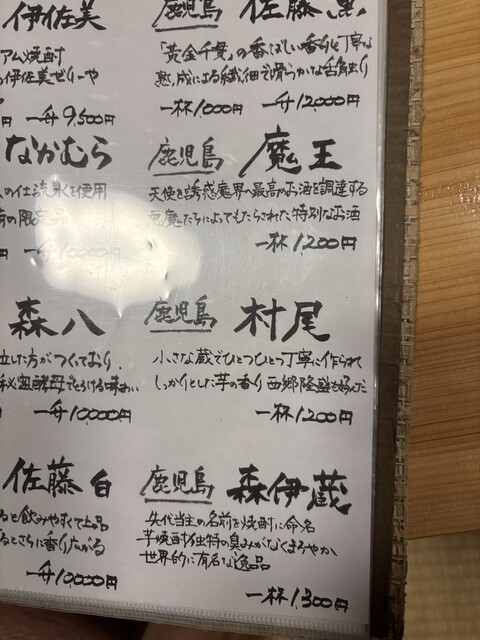 伊佐美
アム焼酎
の伊佐美ぜりーや
円 一升9,500円
なかむら
の仕込水を使用
の限定品
一升10,000円
森八
立した方がつくっており
酵母でとろける味わい
一升10,000円
佐藤 白
ると飲みやすくて上品
るとさらに香り広がる
一升10,000円
鹿児島 佐藤 黒
「黄金千貫」の香ばしい香りと丁寧な
熟成による繊細で滑らかな舌触り
一杯1000円 一升12,000円
鹿児島 魔王
天使を誘惑魔界へ最高のお酒を調達する
悪魔たちによってもたらされた特別なお酒
一杯1,200円
鹿児島 村尾
小さな蔵でひとつひとつ丁寧に作られ
しっかりとした芋の香り 西郷隆盛も好んだ
一杯1,200円
鹿児島 森伊蔵
先代当主の名前を焼酎に命名
芋焼酎独特の臭みがなくまろやか
世界的に有名な逸品
一杯1,300円